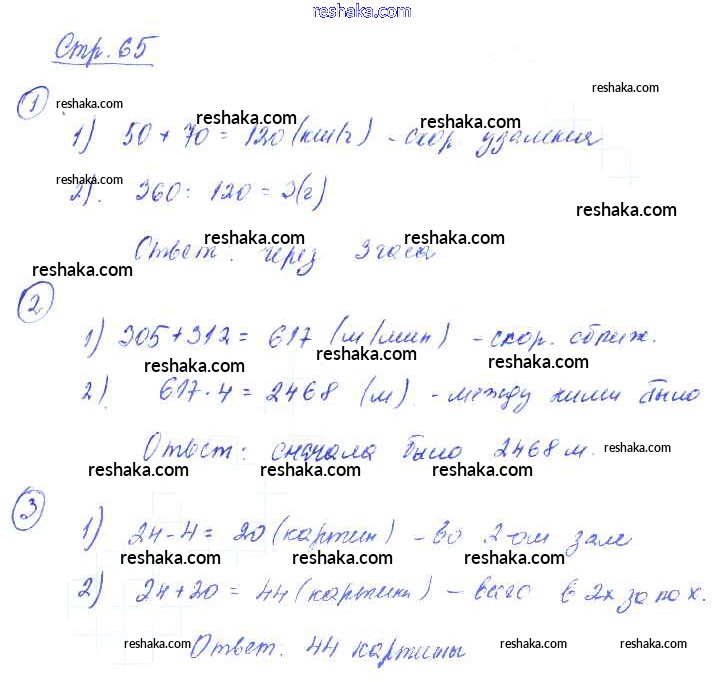 reshaka.com
Стр. 65
reshaka.com
1
reshaka.com reshaka.com reshaka.com
1) 50 + 70 = 120 (км/ч) - скор. удаления
reshaka.com
reshaka.com reshaka.com reshaka.com
2). 360 : 120 = 3 (г)
reshaka.com reshaka.com reshaka.com
Ответ: через 3 часа
reshaka.com
2
reshaka.com reshaka.com
1) 305 + 312 = 617 (м/мин) - скор. сближ.
reshaka.com reshaka.com reshaka.com
2) 617 · 4 = 2468 (м) - между ними было
reshaka.com
Ответ: сначала было 2468 м.
reshaka.com reshaka.com reshaka.com
3
reshaka.com reshaka.com
1) 24 - 4 = 20 (картин) - во 2-ом зале
reshaka.com reshaka.com reshaka.com
2) 24 + 20 = 44 (картины) - всего в 2х залах.
reshaka.com reshaka.com
Ответ: 44 картины
reshaka.com reshaka.com reshaka.com